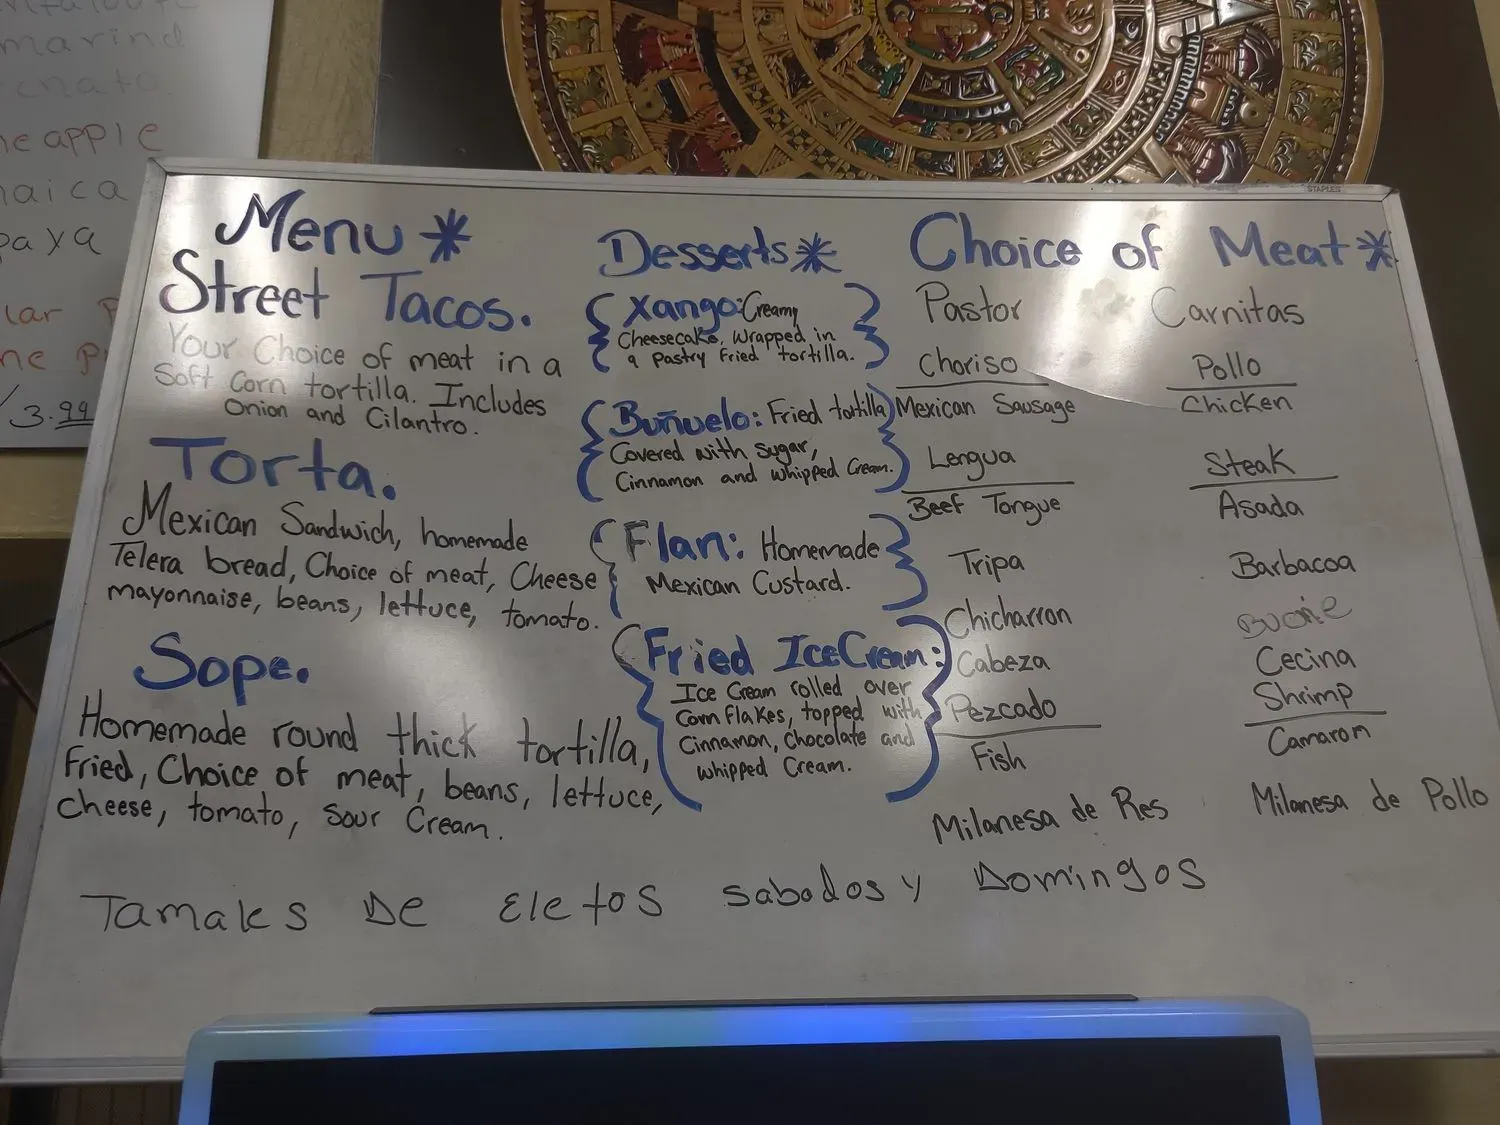 marind
neapple
aica
paya
lar
ne
3.99
STAPLES
Menu*
Street Tacos.
Your Choice of meat in a
Soft Corn tortilla. Includes
Onion and Cilantro.
Torta.
Mexican Sandwich, homemade
Telera bread, Choice of meat, Cheese
mayonnaise, beans, lettuce, tomato.
Sope.
Homemade round thick tortilla,
Fried, Choice of meat, beans, lettuce,
Cheese, tomato, Sour Cream.
Desserts*
Xango: Creamy
Cheesecake, Wrapped in
a pastry Fried tortilla.
Buñuelo: Fried tortilla
Covered with sugar,
Cinnamon and whipped Cream.
Flan: Homemade
Mexican Custard.
Fried Ice Cream:
Ice Cream rolled over
Corn flakes, topped with
Cinnamon, Chocolate and
whipped Cream.
Choice of Meat*
Pastor
Choriso
Mexican Sausage
Lengua
Beef Tongue
Tripa
Chicharron
Cabeza
Pezcado
Fish
Milanesa de Res
Carnitas
Pollo
Chicken
Steak
Asada
Barbacoa
Cecina
Shrimp
Camaron
Milanesa de Pollo
Tamales De Eletos sabados y Domingos